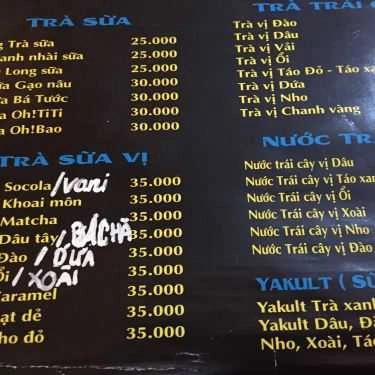 TRÀ SỮA
Trà sữa 25.000
anh nhài sữa 25.000
Long sữa 25.000
ữa Gạo nâu 30.000
a Bá Tước 30.000
a Oh!TiTi 30.000
a Oh!Bao 30.000
TRÀ SỮA VỊ
Socola /vani 35.000
Khoai môn 35.000
Matcha 35.000
Dâu tây / BẠC HÀ 35.000
Đào / DỨA 35.000
ổi / XOÀI 35.000
aramel 35.000
ạt dẻ 35.000
ho đỏ 35.000
TRÀ TRÁI
Trà vị Đào
Trà vị Dâu
Trà vị Vải
Trà vị Ổi
Trà vị Táo Đỏ - Táo xa
Trà vị Dứa
Trà vị Nho
Trà vị Chanh vàng
NƯỚC TR
Nước trái cây vị Dâu
Nước trái cây vị Táo xan
Nước trái cây vị Ổi
Nước trái cây vị Xoài
Nước trái cây vị Nho
Nước trái cây vị Đào
YAKULT ( SỮ
Yakult Trà xanh
Yakult Dâu, Đà
Nho, Xoài, Táo